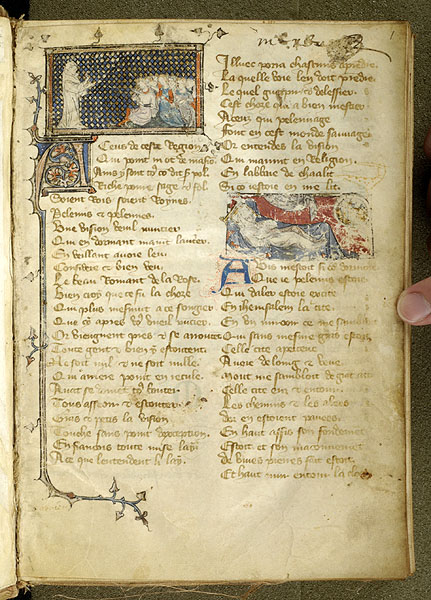 A Ceus de ceste Region
Qui point nont de maison
Ains y sont to9 co dit s pol
Riche povre sage & fol
Soient Rois soient Roynes
Pelerins et pelerines
Une vision veul nuncier
Qui en dormant mavint lautrer
En veillant avoie leu
Considere et bien veu
Le beau Romant de la Rose
Bien croy que ce fu la chose
Qui plus mesmut a ce songer
Que cy apres vo9 vueil nucier
Or viengnent pres & se arouter
Toute gent & bien escoutent
Ne soit nul & ne soit nulle
Qui arriere point en recule
Avant se touter
Tous asseoir & escouter
Grans & petis la vision
Touche sans point dexcepcion
En francois toute mise lay
A ce que lentendent li lay
Illuec porra chascuns aprendre
La quelle voie len doit prendre
Le quel guerpir & delessier
Cest choze qui a bien mestier
A ceuz qui pelerinage
font en cest monde sauvage
Or entendes la vision
Qui mavint en Religion
En labbaie de chaalit
Si co iestoie en me lit
Avis mestoit si co dormoie
Que ie pelerins estoie
Qui daler estoie excite
En iherusalem la cite
En un miroir ce me sambloit
Qui sans mesure grans estoit
Celle cite aperceue
Avoie de loing & veue
Mout me sambloit de grant
Celle cite ens & entour
Les chemins & les alees
dor en estoient pavees
En haut assis son fondement
Estoit et son maconnement
de vives pierres fait estoit
Et haut mur entour la